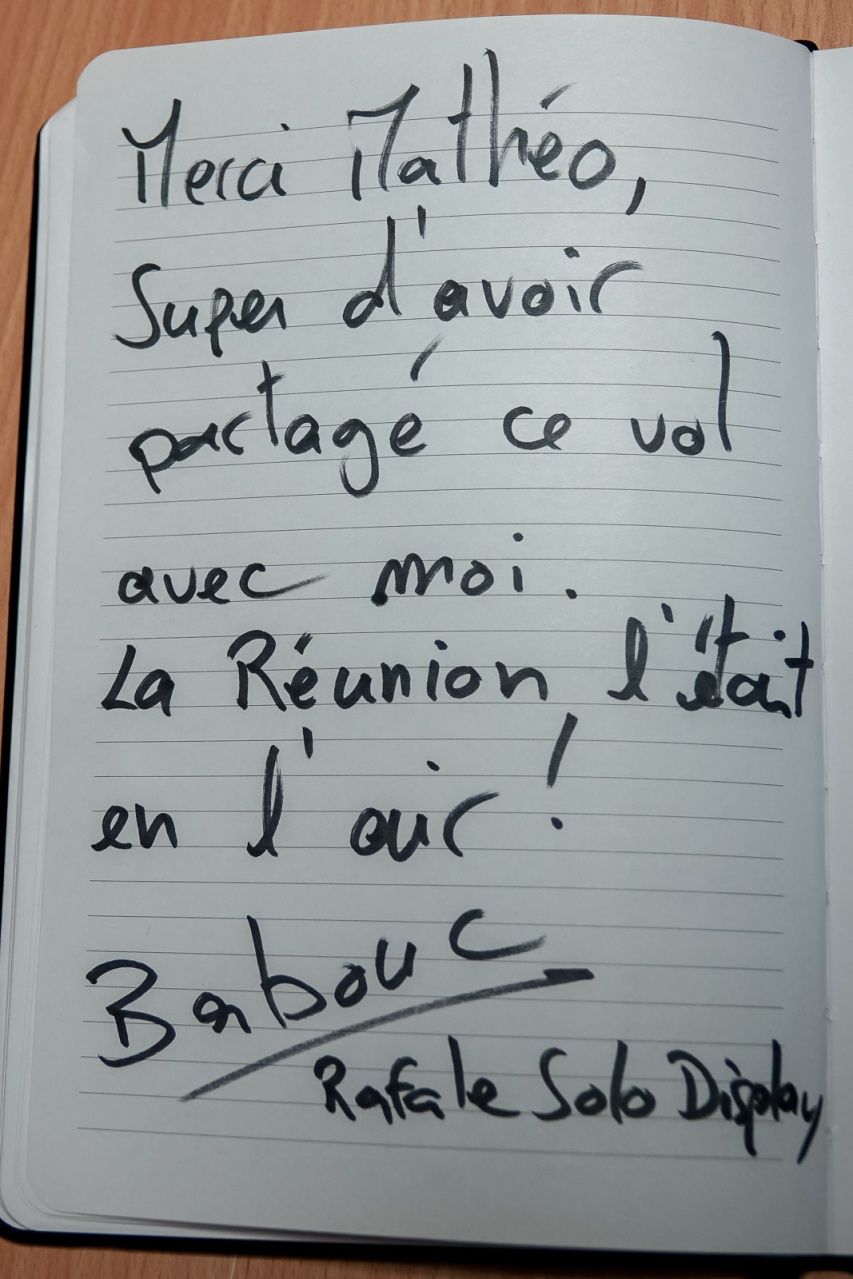 Merci Mathéo,
Super d'avoir
partagé ce vol
avec moi.
La Réunion l'était
en l'air !
Babouc
Rafale Solo Display